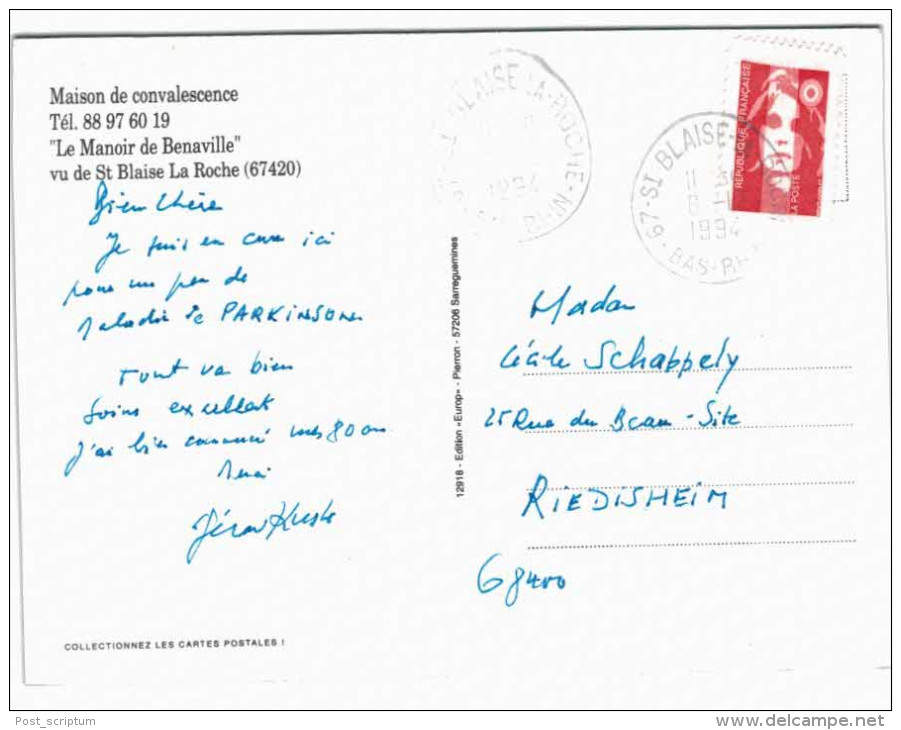 Maison de convalescence
Tél. 88 97 60 19
"Le Manoir de Benaville"
vu de St Blaise La Roche (67420)
Bien Chère
Je suis en cure ici
pour un peu de
maladie de PARKINSON
Tout va bien
Soins excellent
J'ai bien commencé mes 80 ans
Merci
COLLECTIONNEZ LES CARTES POSTALES !
12918 - Edition «Europ» - Pierron - 57206 Sarreguemines
BLAISE LA-ROCHE
1994
RHIN
67-ST BLAISE
11 H
6
1994
BAS-RH
RÉPUBLIQUE FRANÇAISE
LA POSTE
Madam
Cécile Schappely
25 Rue du Beau-Site
RIEDISHEIM
68400
Post_scriptum
delcampe.net